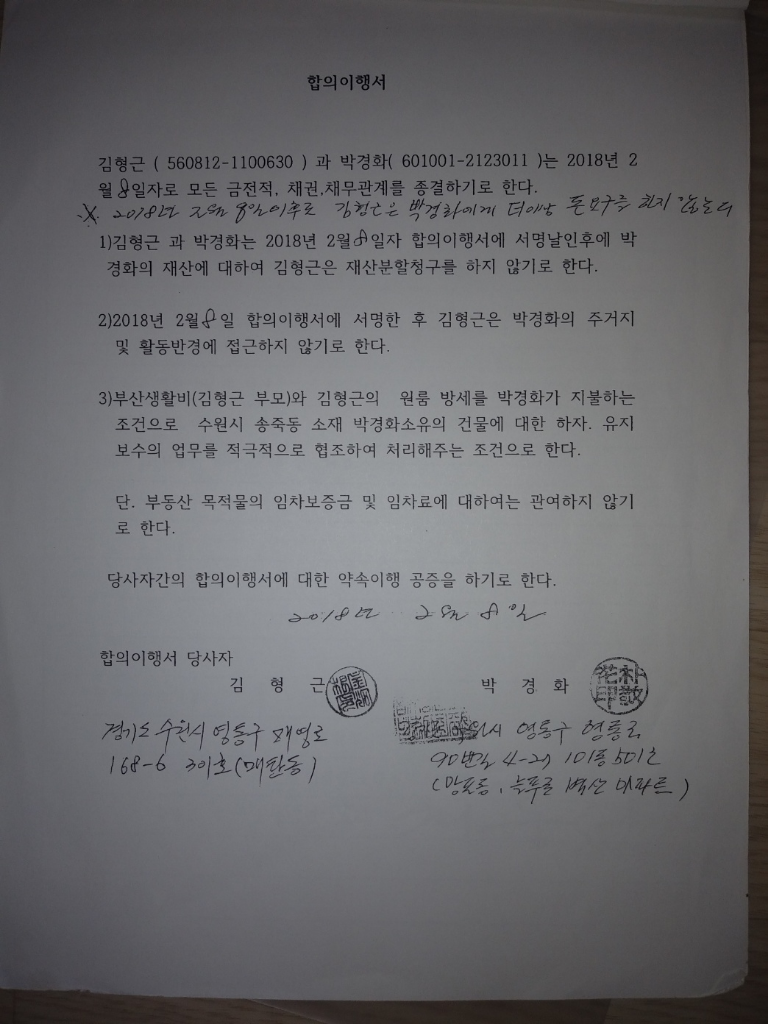 합의이행서
김형근 ( 560812-1100630 ) 과 박경화( 601001-2123011 )는 2018년 2
월 8일자로 모든 금전적, 채권,채무관계를 종결하기로 한다.
※ 2018년 2월 8일이후로 김형근은 박경화에게 더이상 돈요구를 하지 않는다
1)김형근 과 박경화는 2018년 2월 8일자 합의이행서에 서명날인후에 박
경화의 재산에 대하여 김형근은 재산분할청구를 하지 않기로 한다.
2)2018년 2월 8일 합의이행서에 서명한 후 김형근은 박경화의 주거지
및 활동반경에 접근하지 않기로 한다.
3)부산생활비(김형근 부모)와 김형근의 원룸 방세를 박경화가 지불하는
조건으로 수원시 송죽동 소재 박경화소유의 건물에 대한 하자. 유지
보수의 업무를 적극적으로 협조하여 처리해주는 조건으로 한다.
단. 부동산 목적물의 임차보증금 및 임차료에 대하여는 관여하지 않기
로 한다.
당사자간의 합의이행서에 대한 약속이행 공증을 하기로 한다.
2018년 2월 8일
합의이행서 당사자
김 형 근 박 경 화
경기도 수원시 영통구 매영로
168-6 301호(매탄동)
영통구
90번길 4-27 101동 501호
(망포동, 늘푸른 벽산 아파트)